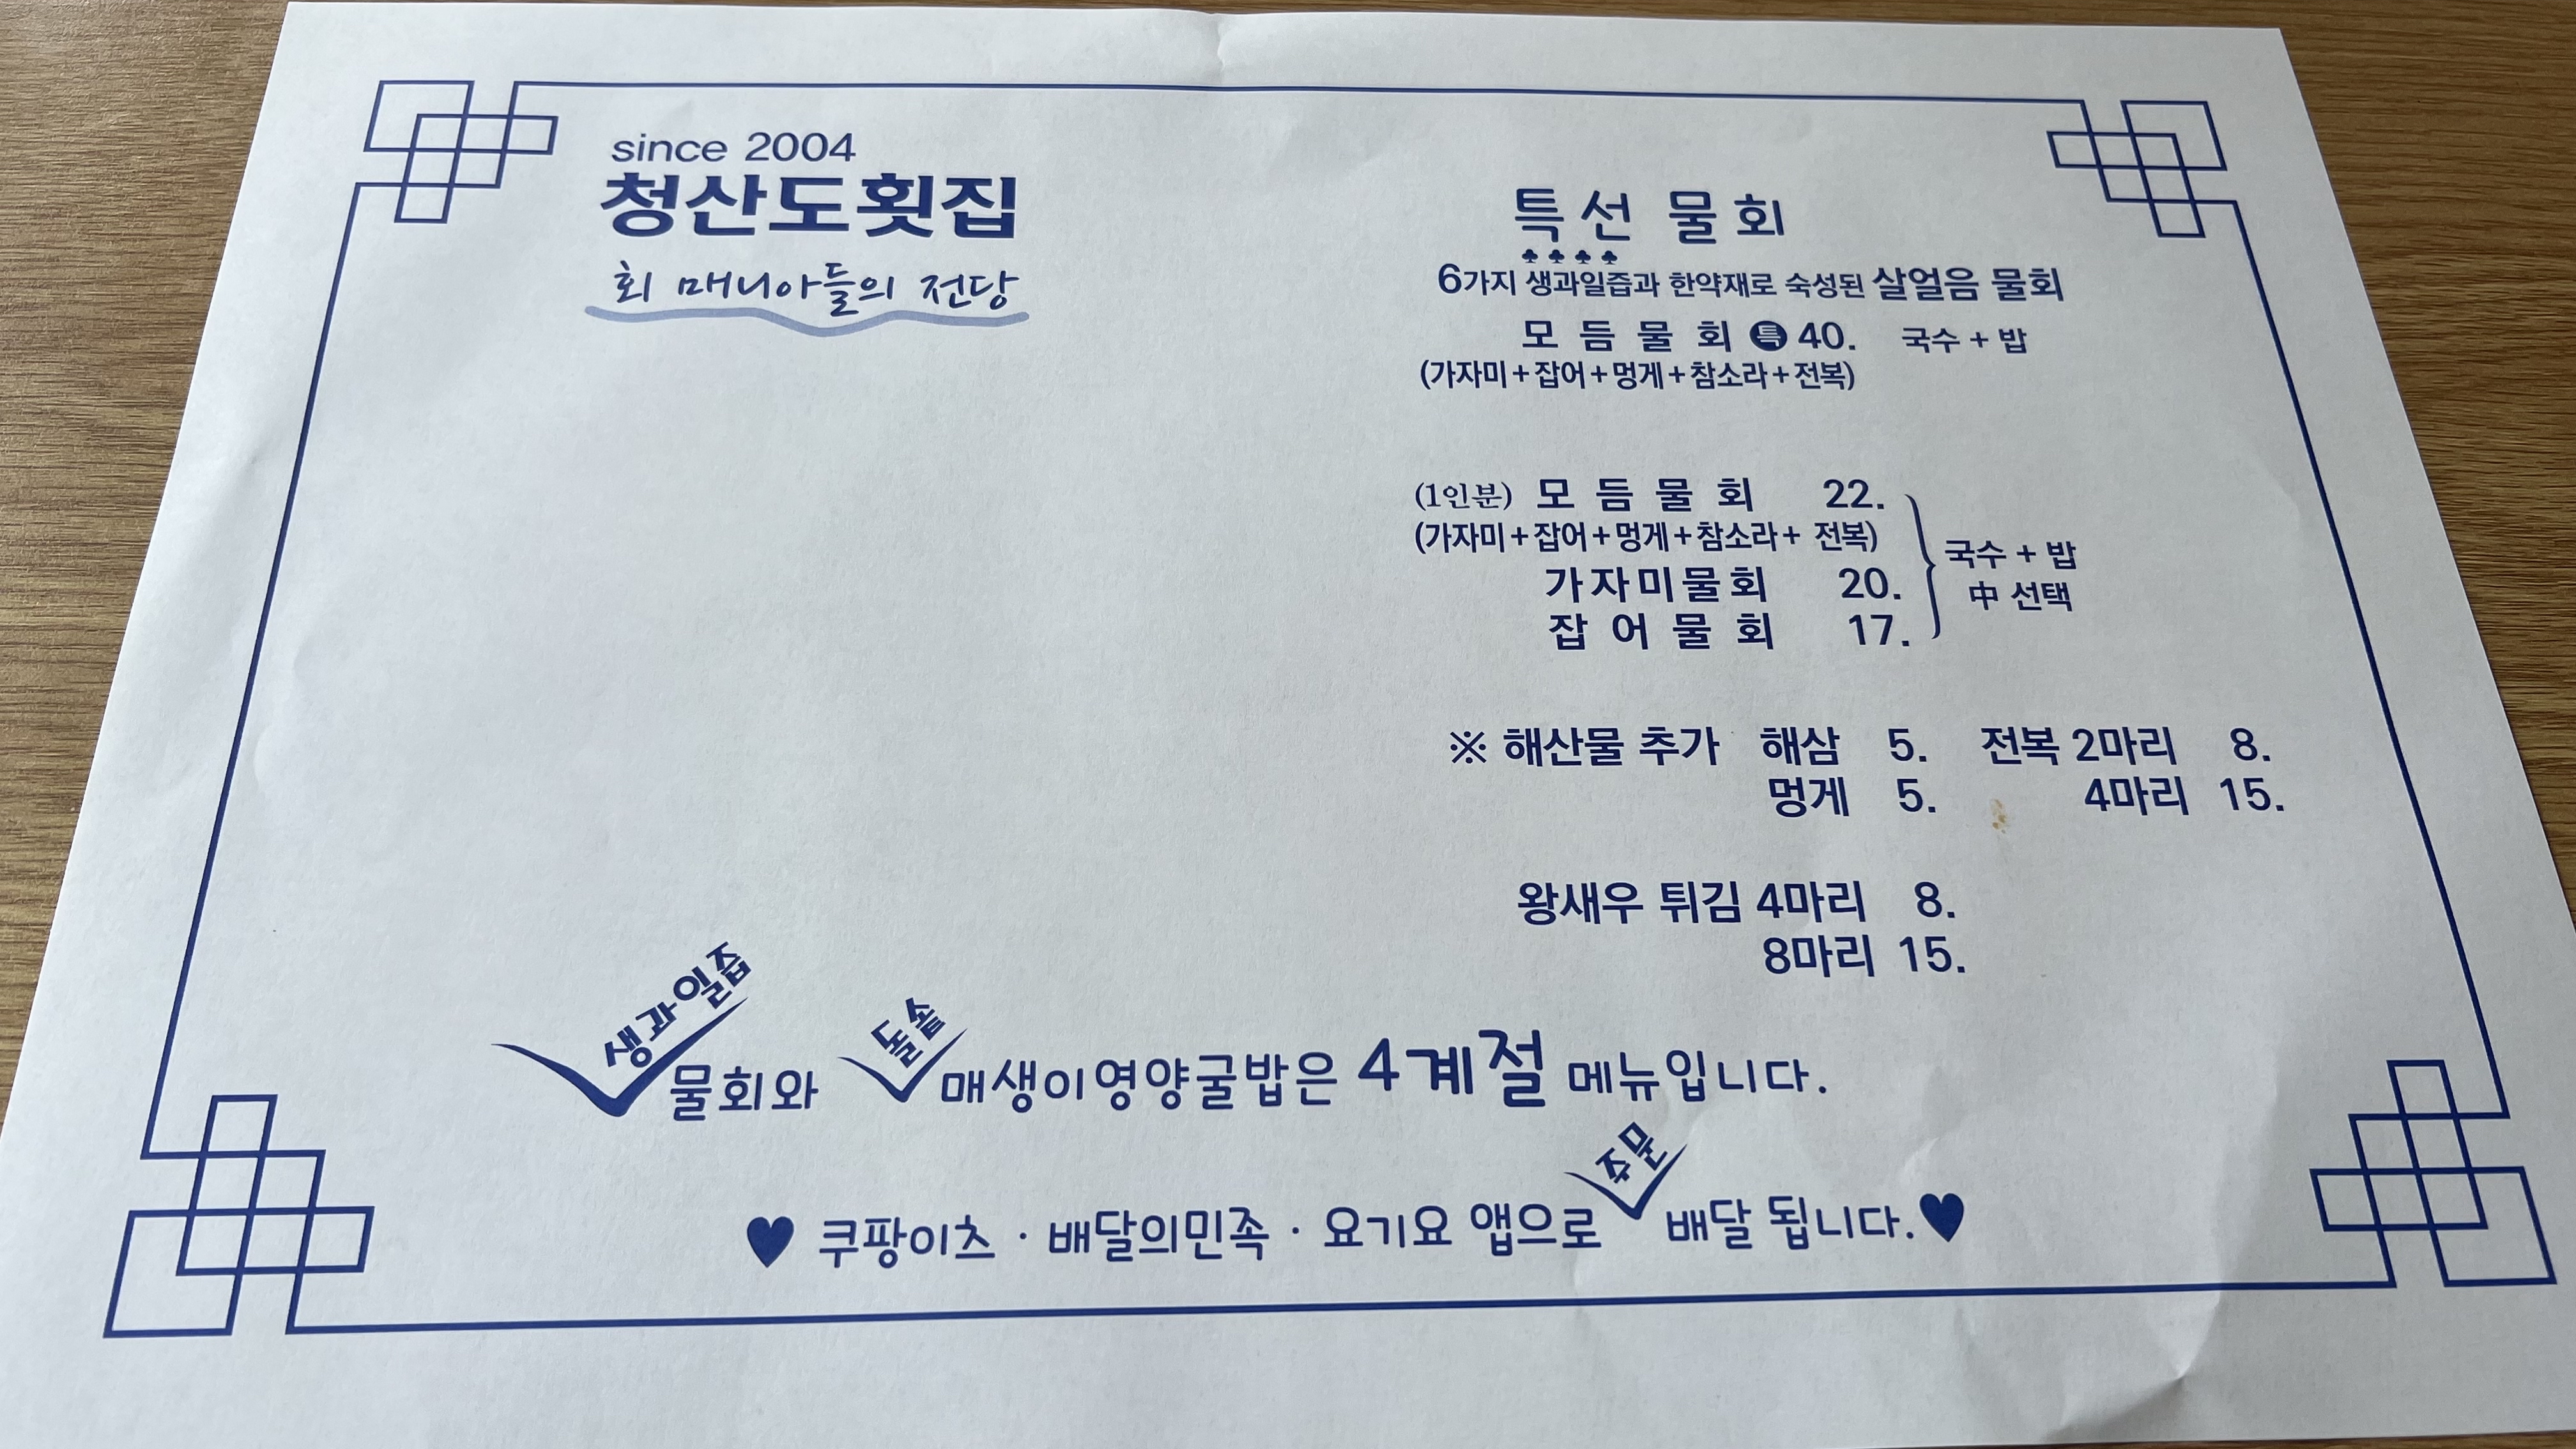 since 2004
청산도횟집
회 매니아들의 전당
특선 물회
♣♣♣♣
6가지 생과일즙과 한약재로 숙성된 살얼음 물회
모 듬 물 회 특 40. 국수 + 밥
(가자미+잡어+멍게+참소라+전복)
(1인분) 모 듬 물 회 22.
(가자미+잡어+멍게+참소라+ 전복)
가자미물회 20.
잡 어 물 회 17.
국수 + 밥
中 선택
※ 해산물 추가 해삼 5. 전복 2마리 8.
멍게 5. 4마리 15.
왕새우 튀김 4마리 8.
8마리 15.
생과일즙 물회와 돌솥 매생이영양굴밥은 4계절 메뉴입니다.
♥ 쿠팡이츠 · 배달의민족 · 요기요 앱으로 주문 배달 됩니다.♥